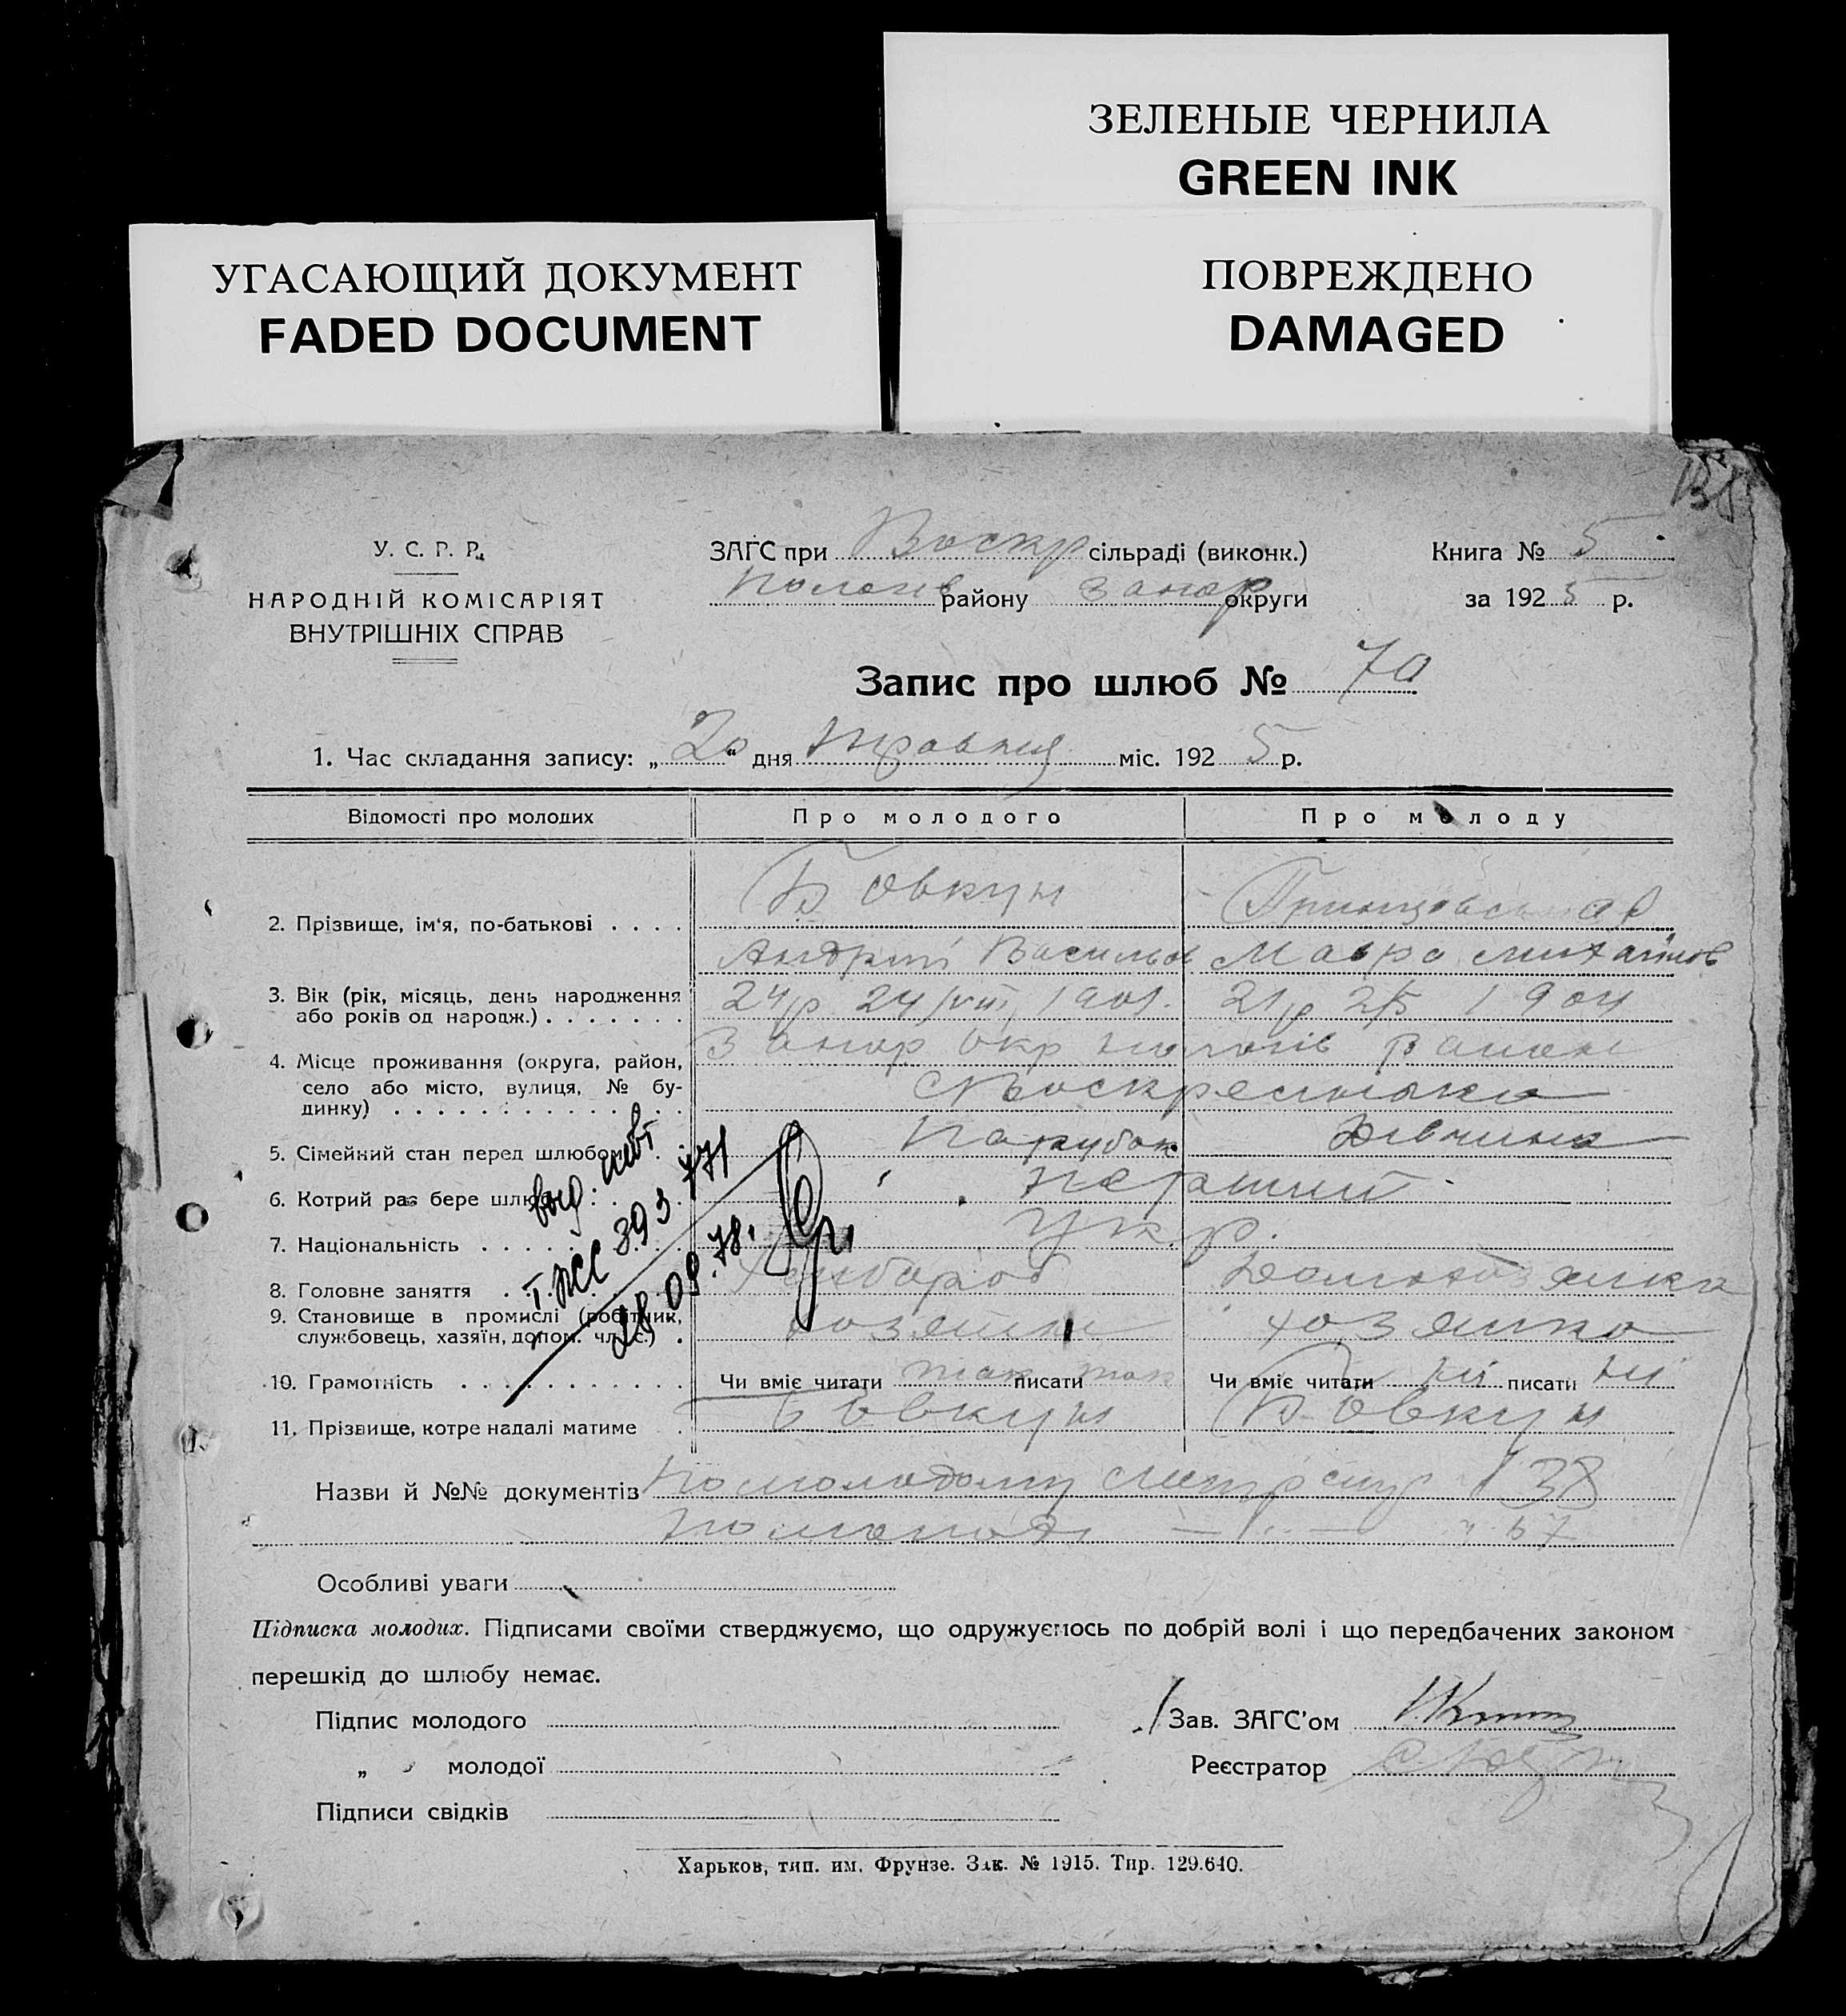 ЗЕЛЕНЫЕ ЧЕРНИЛА
GREEN INK
УГАСАЮЩИЙ ДОКУМЕНТ
FADED DOCUMENT
ПОВРЕЖДЕНО
DAMAGED
У. С. Р. Р.
НАРОДНІЙ КОМІСАРІЯТ
ВНУТРІШНІХ СПРАВ
ЗАГС при Воскр сільраді (виконк.)
Пологів району Запор округи
Книга № 5
за 1925 р.
Запис про шлюб № 70
1. Час складання запису: „20“ дня травня міс. 1925 р.
Відомості про молодих Про молодого Про молоду
2. Прізвище, ім'я, по-батькові . . . . Бовкун
Андрій Васильов Мавра Михайлов
3. Вік (рік, місяць, день народження або років од народж.) . . . . . . . 24р 24/VIII 1901. 21р 2/5 1904
4. Місце проживання (округа, район, село або місто, вулиця, № будинку) . . . . Запор окр Пологів район
с Воскресенка
5. Сімейний стан перед шлюбом Парубок Дівчина
6. Котрий раз бере шлюб Перший
7. Національність . . . . Укр.
8. Головне заняття Хлібороб Домохозяйка
9. Становище в промислі (робітник, службовець, хазяїн, допом. чл. с.) хозяїн хозяйка
10. Грамотність . . . . Чи вміє читати так писати так Чи вміє читати ні писати ні
11. Прізвище, котре надалі матиме Бовкун Бовкун
Т.ЖС 393771
28.09.78.
Назви й №№ документів По молодому 138
По молодій 67
Особливі уваги
Підписка молодих. Підписами своїми стверджуємо, що одружуємось по добрій волі і що передбачених законом
перешкід до шлюбу немає.
Підпис молодого
Зав. ЗАГС'ом
„ молодої
Реєстратор
Підписи свідків
Харьков, тип. им. Фрунзе. Зак. № 1915. Тир. 129.640.